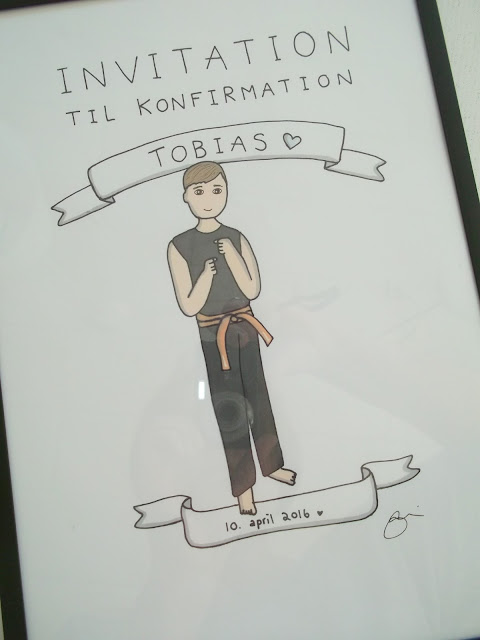 INVITATION
TIL KONFIRMATION
TOBIAS ♡
10. april 2016 ♥